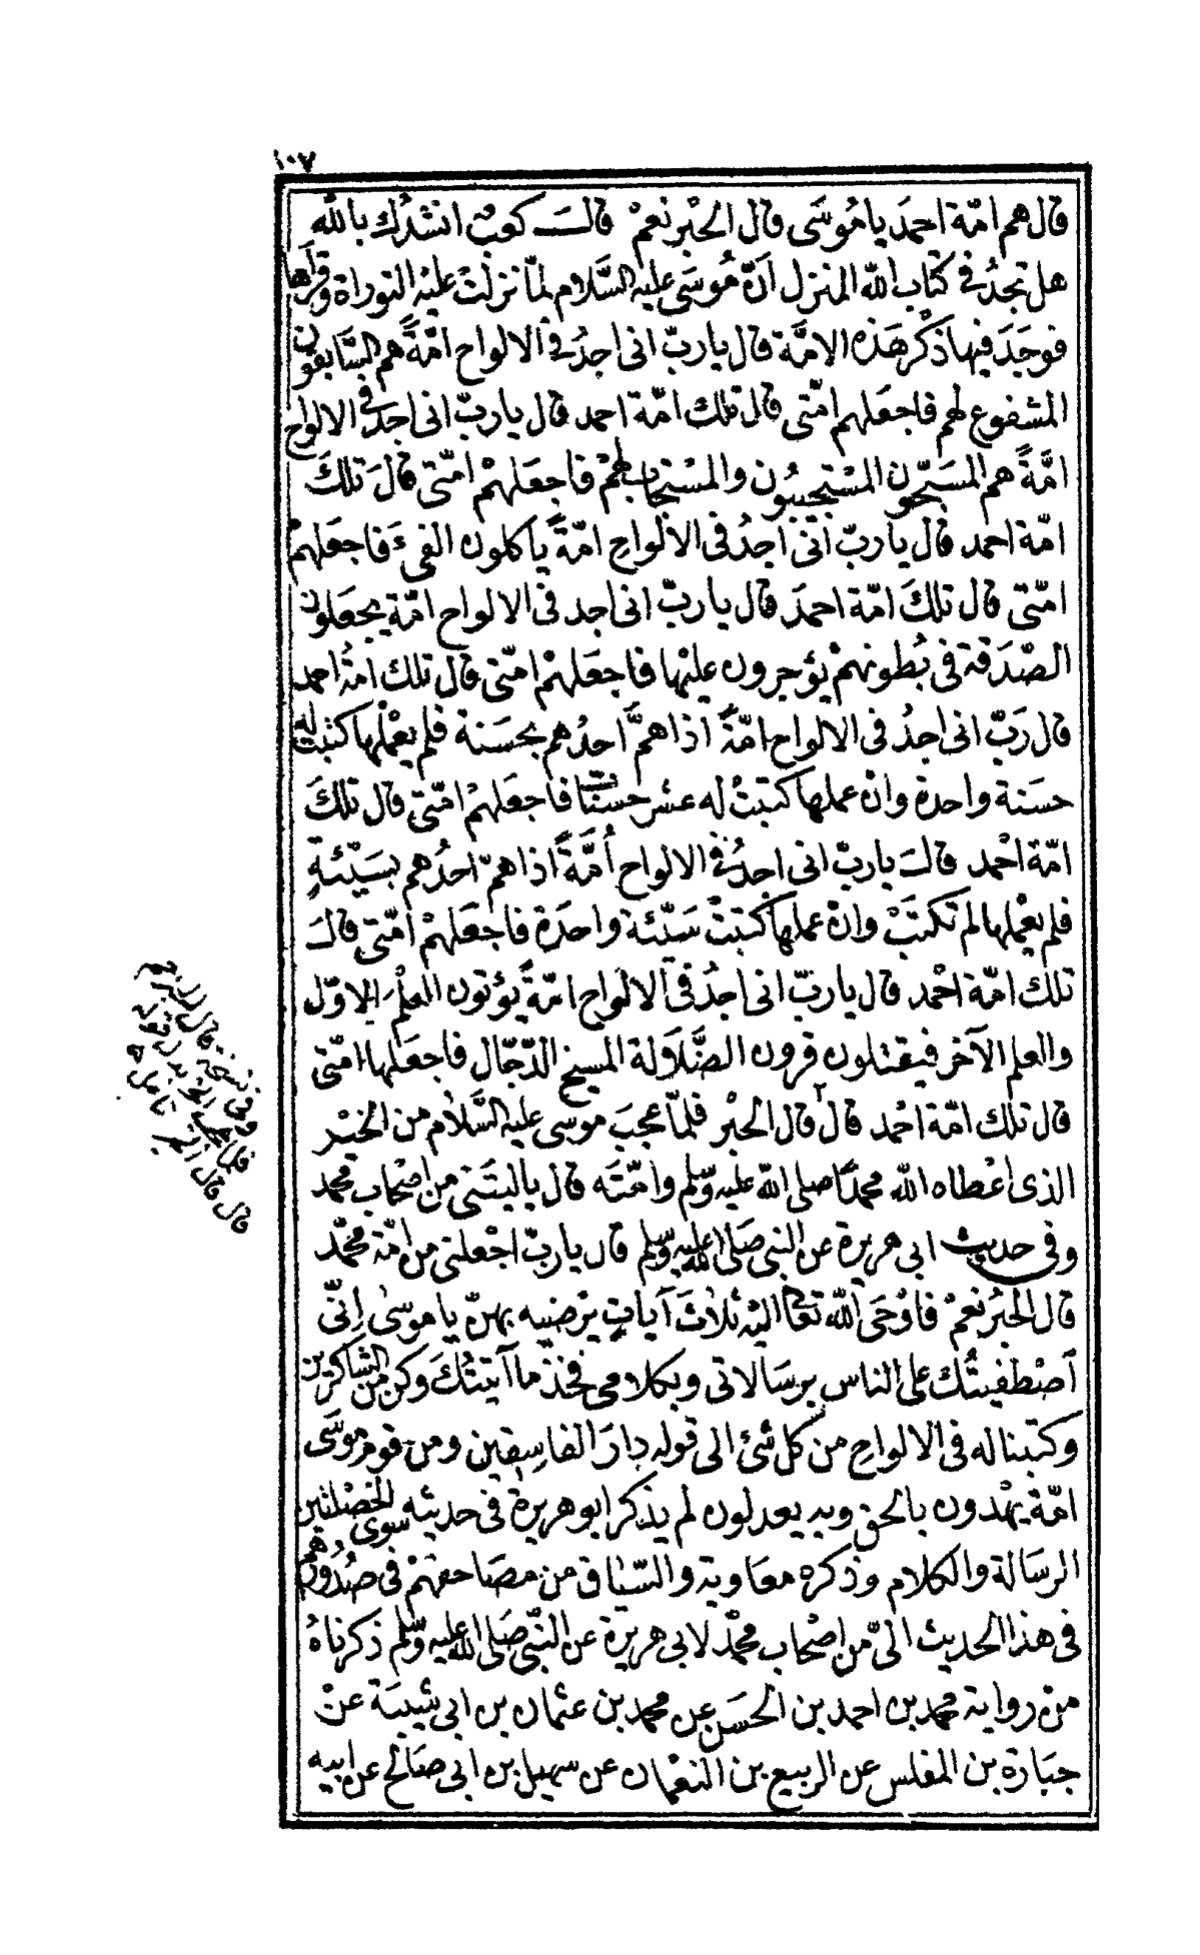 ١٠٧
قال هم امّة احمَد يا مُوسَى قال الحَبْر نعمْ قالَ كعب انشدُك بالله
هل تجدُ في كتاب الله المنزل اَنّ مُوسَى عليه السَّلام لمّا نزلتْ عليْه التوراة وقرأها
فوجَدَ فيها ذكر هَذه الامَّة قال يا ربّ انى اجدُ فى الالواح امّةً هم السَّابقون
المشفوع لهم فاجعَلهم امّتى قال تلك امّة احمد قال يا ربّ انى اجد فى الالواح
امَّةً هم المسَبّحون المسْتجيبُون والمسْتجاب لهمْ فاجعَلهمْ امّتى قالَ تلكَ
امّة احمد قال يا ربّ انّى اجدُ فى الالواحِ امّةً يأكلون الفىءَ فاجعَلهمْ
امّتى قال تلكَ امّة احمَد قال يا ربّ انى اجد فى الالواح امّة يجعَلون
الصّدَقة فى بُطونهمْ يؤجرون عليْها فاجعَلهمْ امّتى قال تلك امّةُ احمد
قال رَبّ انى اجدُ فى الالواح امّةً اذا همَّ احدُهم بحسَنة فلم يعْملها كتبت له
حسَنة واحدة وانْ عملها كتبتْ له عشر حسنات فاجعَلهمْ امّتى قال تلكَ
امّة احْمد قالَ يا ربّ انى اجدُ فى الالواح اُمَّةً اذا همّ احدُهم بسَيّئةٍ
فلم يعْملها لم تكتبْ وانْ عملها كتبتْ سَيّئة واحدَة فاجعَلهمْ امّتى قالَ
تلك امّة احْمد قال يا ربّ انى اجدُ فى الالواح امّةً يؤتون العلْمَ الاوّل
والعلم الآخر فيقتلون قرون الضَّلاَلة المسيخ الدّجّال فاجعَلها امّتى
قال تلك امّة احْمد قال قال الحَبْر فلمّا عجبَ موسى عليه السَّلام من الخيْر
الذى اعْطاه الله محمّدًا صلى الله عليه وسّلم وامّتَه قال ياليتَنى من اصْحاب محمد
وفى حديث ابى هريرة عن النبى صَلى الله عليه وسّلم قال يا ربّ اجْعلنى من امّة محمّد
قال الحَبْرُ نعمْ فاوْحَى الله تعالى اليْه ثلاثَ آياتٍ يرْضيه بهنّ يا موسَى اِنّى
اَصْطفيْتُك على الناس برسَالاتى وبكلامى فخذْ ما آتيْتُكَ وكن من الشاكرين
وكتبنا له فى الالواحِ من كل شئ الى قوله دارَ الفاسِقين ومن قوم موسَى
امّة يهْدون بالحق وبه يعدلون لم يذكر ابو هريرة فى حديثه سوى الخصْلتين
الرسَالة والكلام وذكره معَاوية والسّياق من مصَاحفهمْ فى صُدُورهم
فى هذا الحديث الىّ من اصْحاب محمّد لابى هريرة عن النّبى صَلى الله عليه وسّلم ذكرناهُ
منْ رواية محمد بن احمد بن الحسَن عن محمد بن عثمان بن ابى شيبَة عنْ
جبَارة بن المغلس عن الربيع بن النعْمان عن سهيل بن ابى صَالح عن ابيه
وفى نسخة قال
فلما عجب
قال قال الحبر تأمل